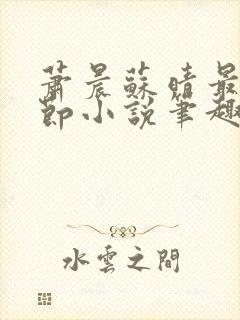 蕭晨蘇晴最
節小說筆趣
水雲之間